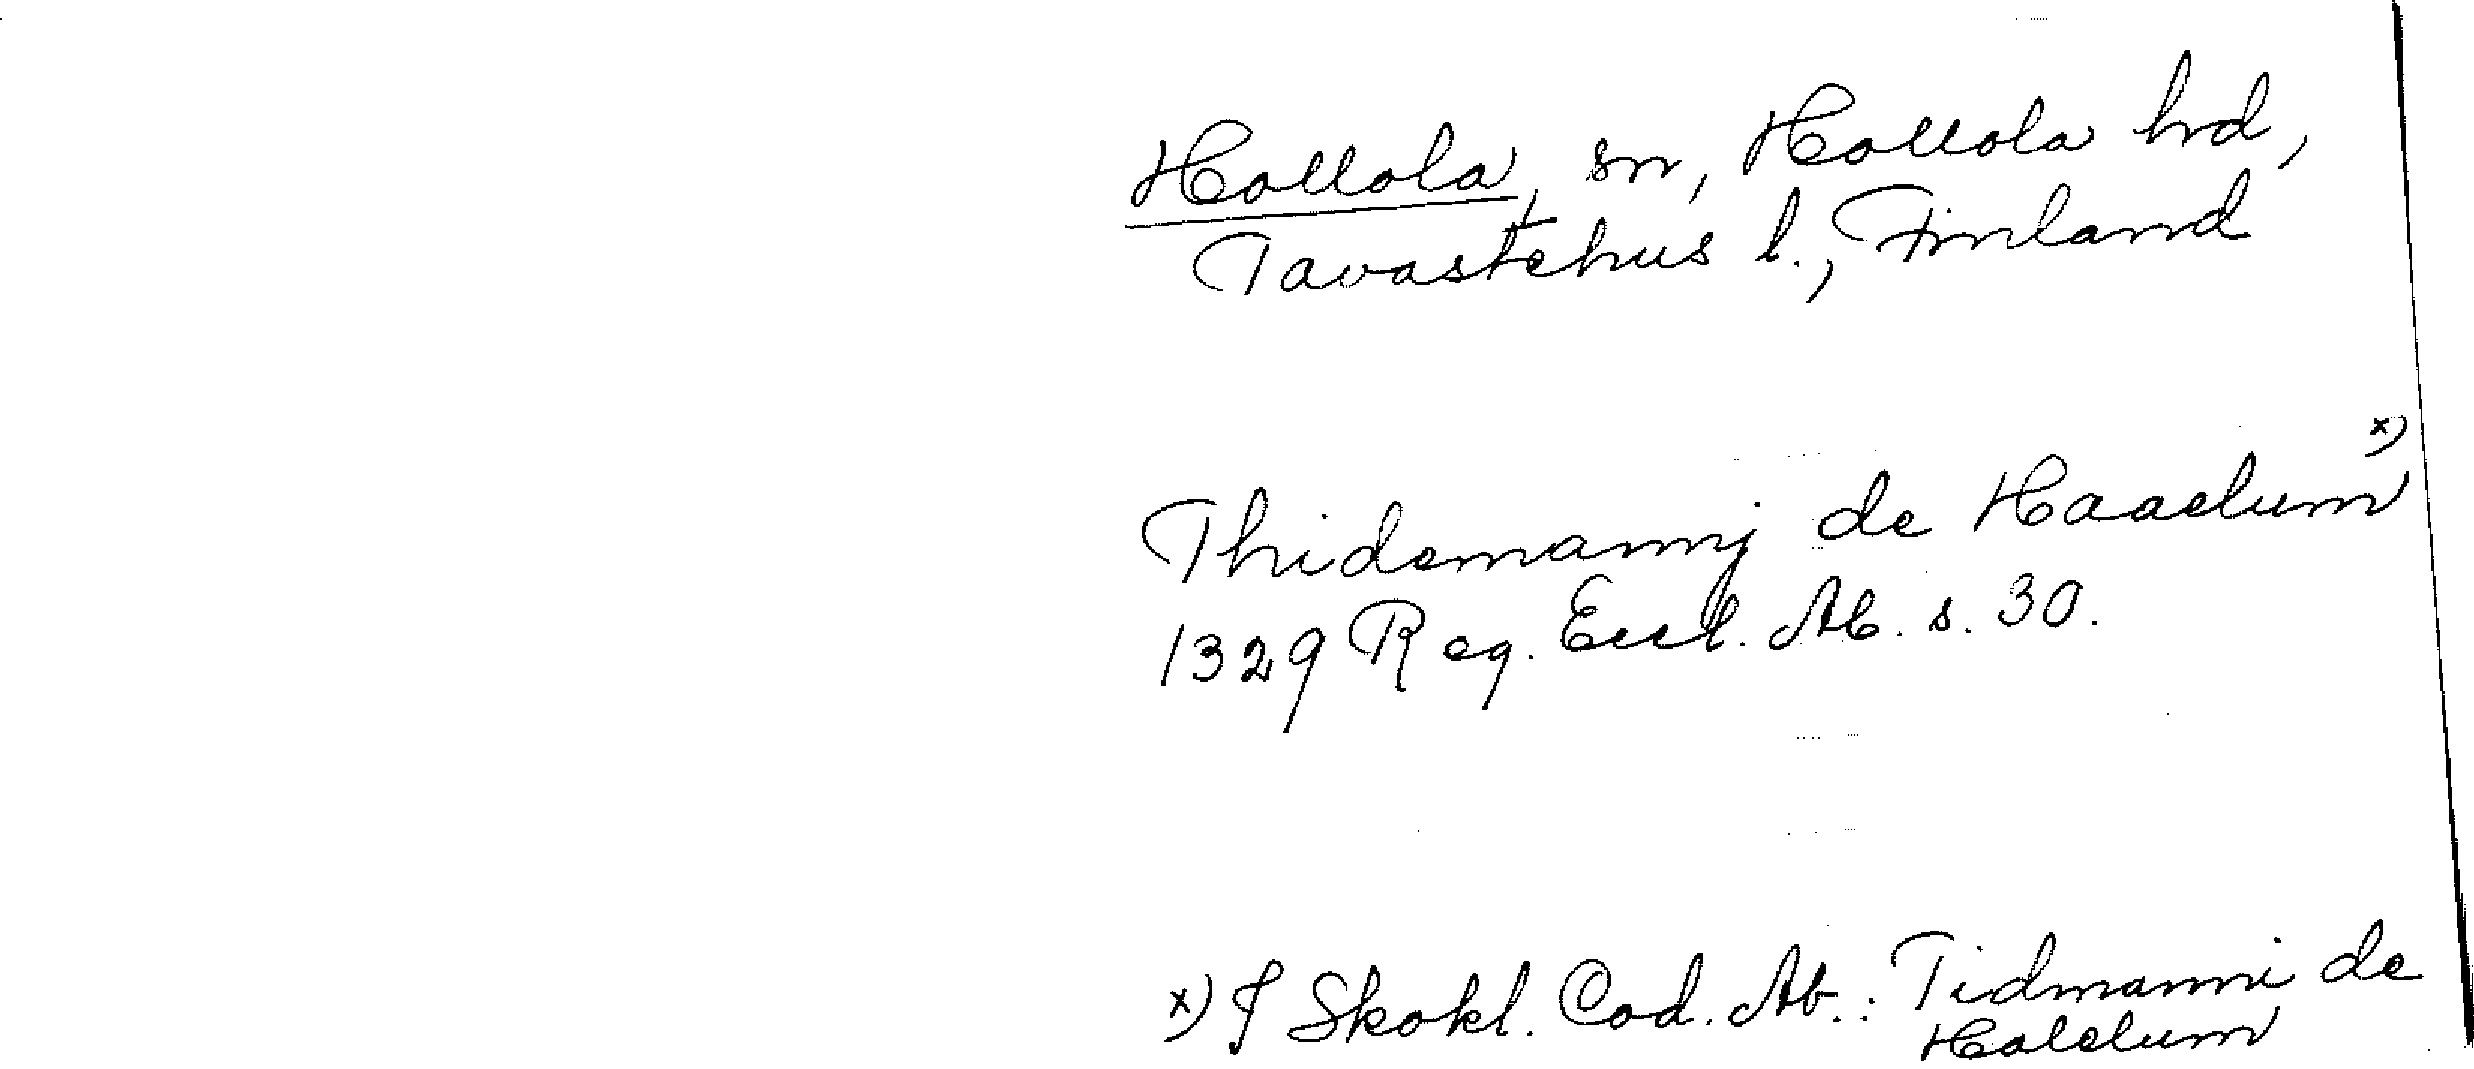 Hollola, sn, Hollola hrd,
Tavastehus l., Finland
Thidemannj de Haaelum x)
1329 Reg. Eccl. Ab. s. 30.
x) I Skokl. Cod. Ab.: Tidmanni de
Halelum